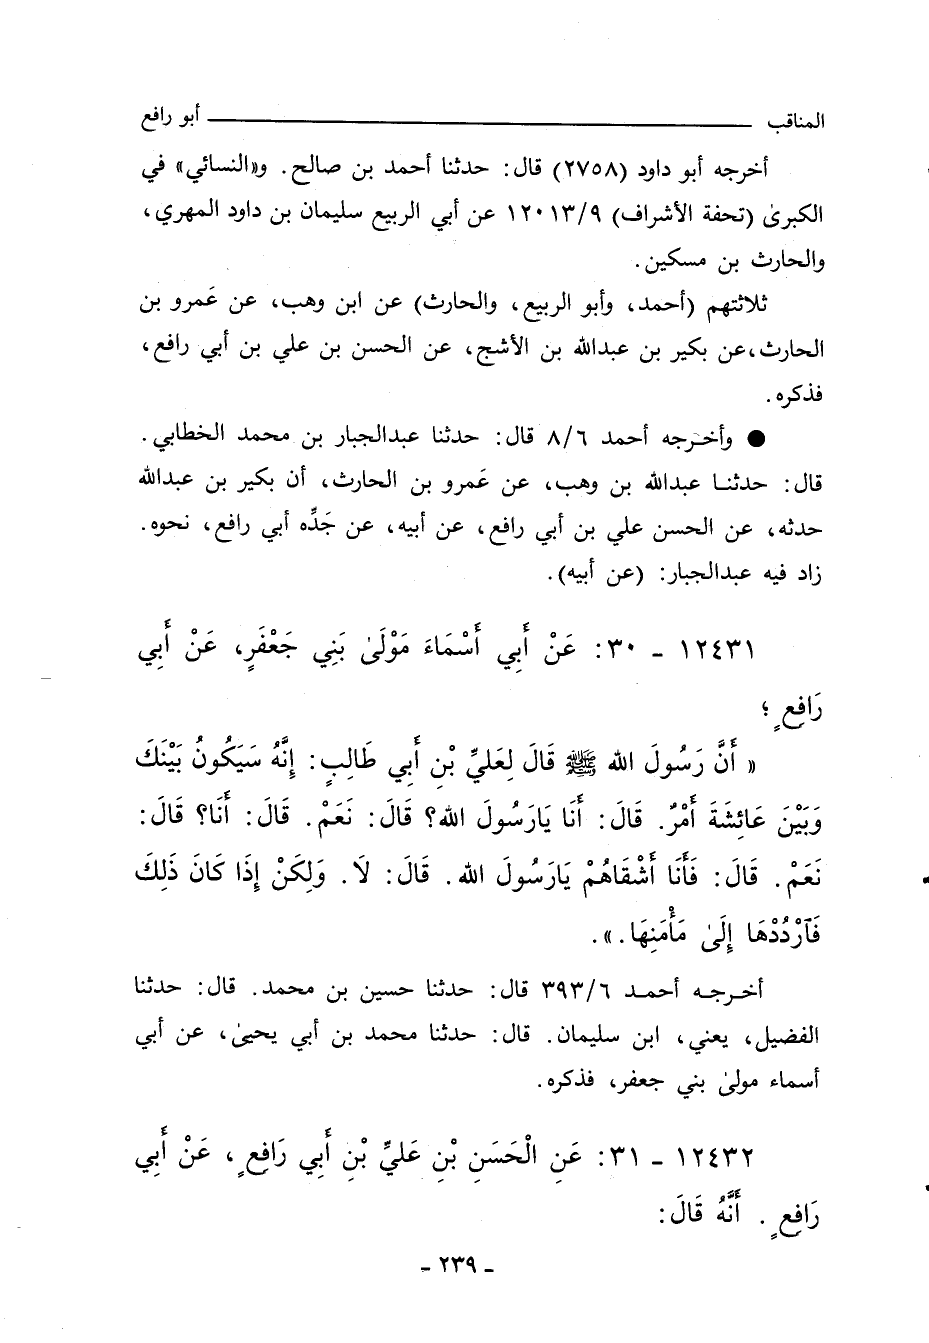 المناقب ــــــــــــ أبو رافع
أخرجه أبو داود (٢٧٥٨) قال: حدثنا أحمد بن صالح. و«النسائي» في
الكبرىٰ (تحفة الأشراف) ١٢٠١٣/٩ عن أبي الربيع سليمان بن داود المهري،
والحارث بن مسكين.
ثلاثتهم (أحمد، وأبو الربيع، والحارث) عن ابن وهب، عن عَمرو بن
الحارث،عن بكير بن عبدالله بن الأشج، عن الحسن بن علي بن أبي رافع،
فذكره.
● وأخرجه أحمد ٨/٦ قال: حدثنا عبدالجبار بن محمد الخطابي.
قال: حدثنا عبدالله بن وهب، عن عَمرو بن الحارث، أن بكير بن عبدالله
حدثه، عن الحسن علي بن أبي رافع، عن أبيه، عن جَدِّه أبي رافع، نحوه.
زاد فيه عبدالجبار: (عن أبيه).
١٢٤٣١ - ٣٠: عَنْ أَبِي أَسْمَاءَ مَوْلَىٰ بَنِي جَعْفَرٍ، عَنْ أَبِي
رَافِعٍ؛
« أَنَّ رَسُولَ الله ﷺ قَالَ لِعَلِيِّ بْنِ أَبِي طَالِبٍ: إِنَّهُ سَيَكُونُ بَيْنَكَ
وَبَيْنَ عَائِشَةَ أَمْرٌ. قَالَ: أَنَا يَارَسُولَ الله؟ قَالَ: نَعَمْ. قَالَ: أَنَا؟ قَالَ:
نَعَمْ. قَالَ: فَأَنَا أَشْقَاهُمْ يَارَسُولَ الله. قَالَ: لَا. وَلَكِنْ إِذَا كَانَ ذَلِكَ
فَآرْدُدْهَا إِلَىٰ مَأْمَنِهَا.».
أخرجه أحمد ٣٩٣/٦ قال: حدثنا حسين بن محمد. قال: حدثنا
الفضيل، يعني، ابن سليمان. قال: حدثنا محمد بن أبي يحيىٰ، عن أبي
أسماء مولىٰ بني جعفر، فذكره.
١٢٤٣٢ - ٣١: عَنِ الْحَسَنِ بْنِ عَلِيِّ بْنِ أَبِي رَافِعٍ، عَنْ أَبِي
رَافِعٍ. أَنَّهُ قَالَ:
- ٢٣٩ -